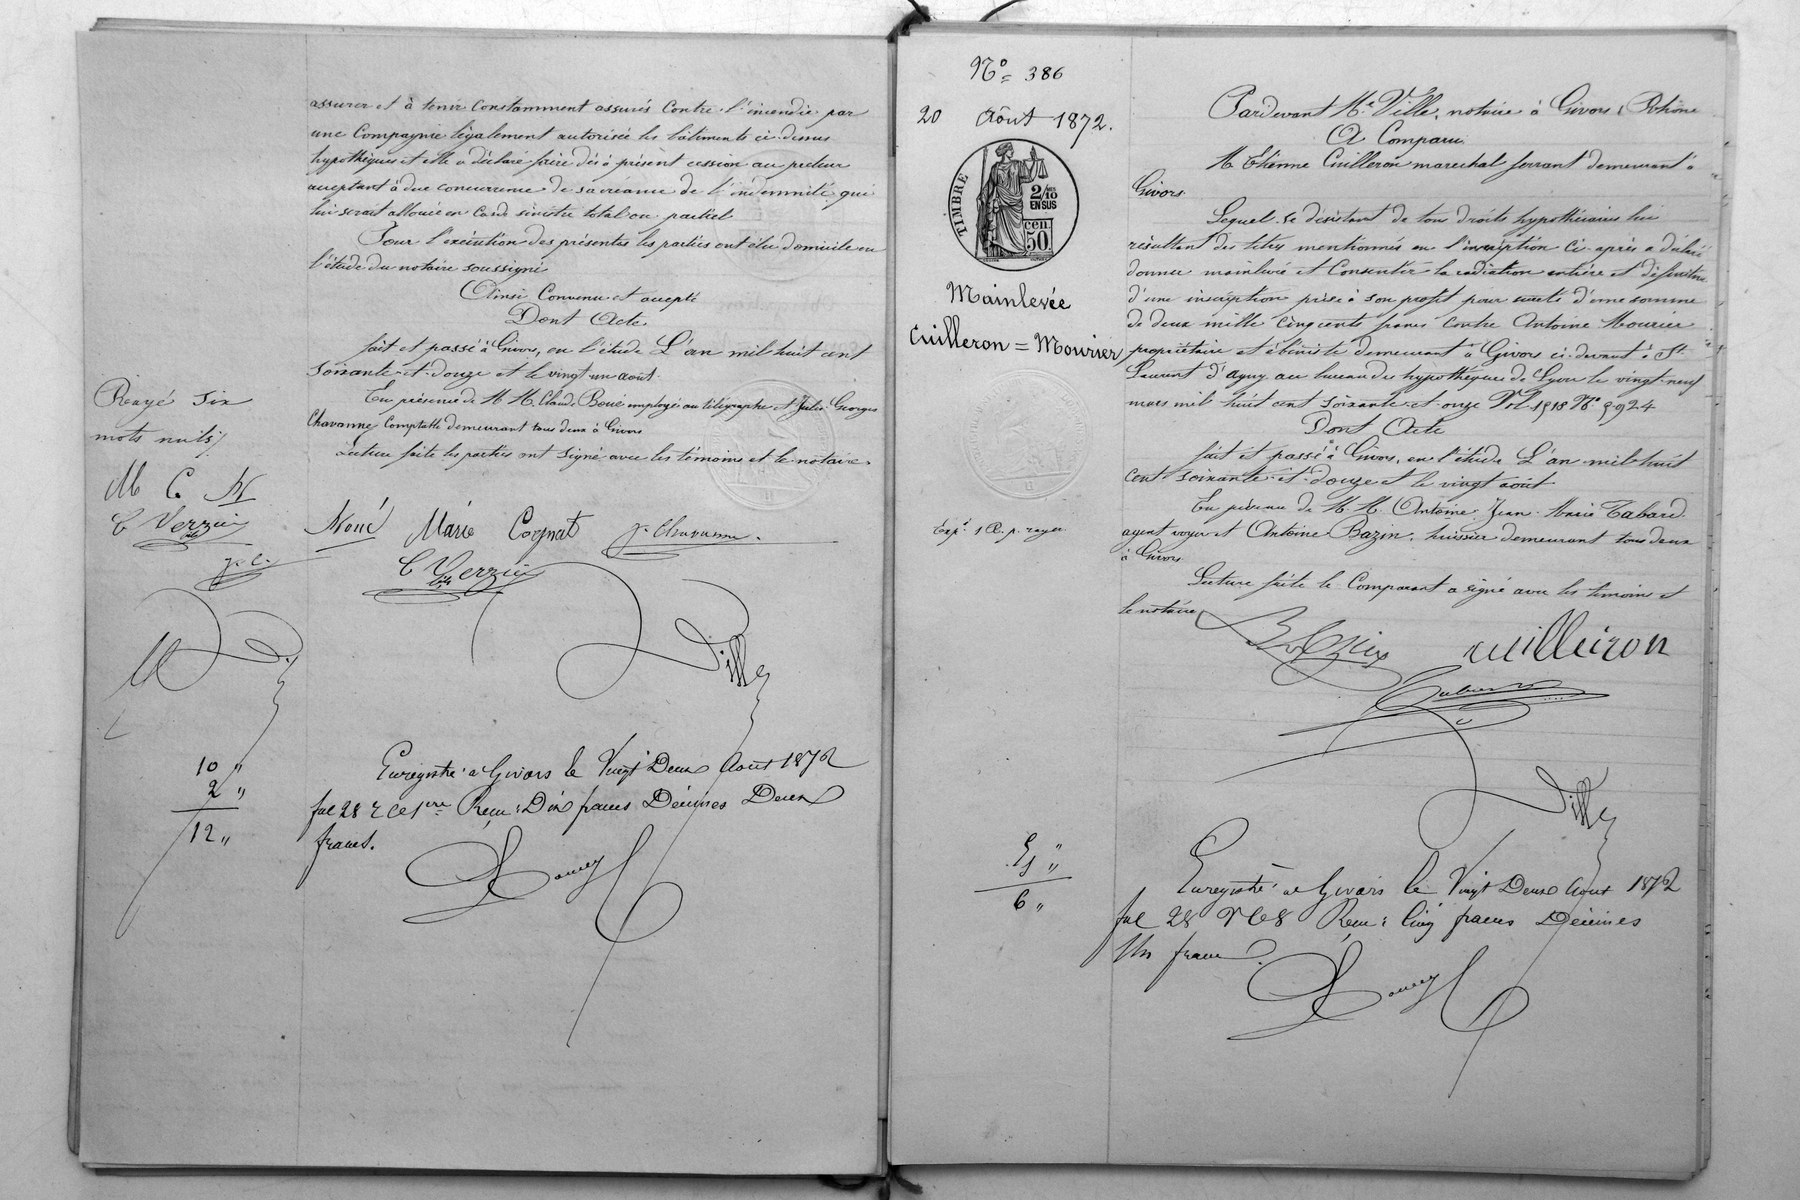 assurer et à tenir constamment assurés contre l'incendie par
une Compagnie légalement autorisée les bâtiments ci-dessus
hypothéqués et elle a déclaré faire dès à présent cession au prêteur
acceptant à due concurrence de sa créance de l'indemnité qui
lui serait allouée en cas de sinistre total ou partiel
Pour l'exécution des présentes les parties ont élu domicile en
l'étude du notaire soussigné
Ainsi Convenu et accepté
Dont Acte
fait et passé à Givors, en l'étude L'an mil huit cent
soixante-et-douze et le vingt-un août.
En présence de M. M. Claude Boué employé au télégraphe et Jules Georges
Chavanne Comptable demeurant tous deux à Givors
Lecture faite les parties ont signé avec les témoins et le notaire.
Rayé six
mots nuls
M C N
C Verzieu
J. C.
Noué Marie Cognat J. Chavanne
C Verzieu
Ville
10 "
2 "
12 "
Enregistré à Givors le Vingt Deux Août 1872
fol 28 r Ce 1re Reçu : Dix francs Décimes Deux
francs.
No 386
20 Août 1872.
TIMBRE
2/10
EN SUS
50 cen.
Mainlevée
Cuilleron = Mourier
Pardevant Me Ville, notaire à Givors, Rhône
A Comparu
M. Etienne Cuilleron maréchal ferrant demeurant à
Givors
Lequel se désistant de tous droits hypothécaires lui
résultant des titres mentionnés en l'inscription ci-après a déclaré
donner mainlevée et Consentir la radiation entière et définitive
d'une inscription prise à son profit pour sureté d'une somme
de deux mille cinq cents francs contre Antoine Mourier
propriétaire et ébéniste demeurant à Givors ci-devant à St
Laurent d'Agny au bureau des hypothèques de Lyon le vingt-neuf
mars mil huit cent soixante-et-onze Vol 1518 No
Dont Acte
fait et passé à Givors, en l'étude L'an mil huit
cent soixante-et-douze et le vingt août
En présence de M. M. Antoine Jean Marie Tabard
agent voyer et Antoine Bazin, huissier demeurant tous deux
à Givors
Lecture faite le Comparant a signé avec les témoins et
le notaire
Bazin Cuilleron
Ville
5 "
1 "
6 "
Enregistré à Givors le Vingt Deux Août 1872
fol 28 Ce 8 Reçu : Cinq francs Décimes
Un franc